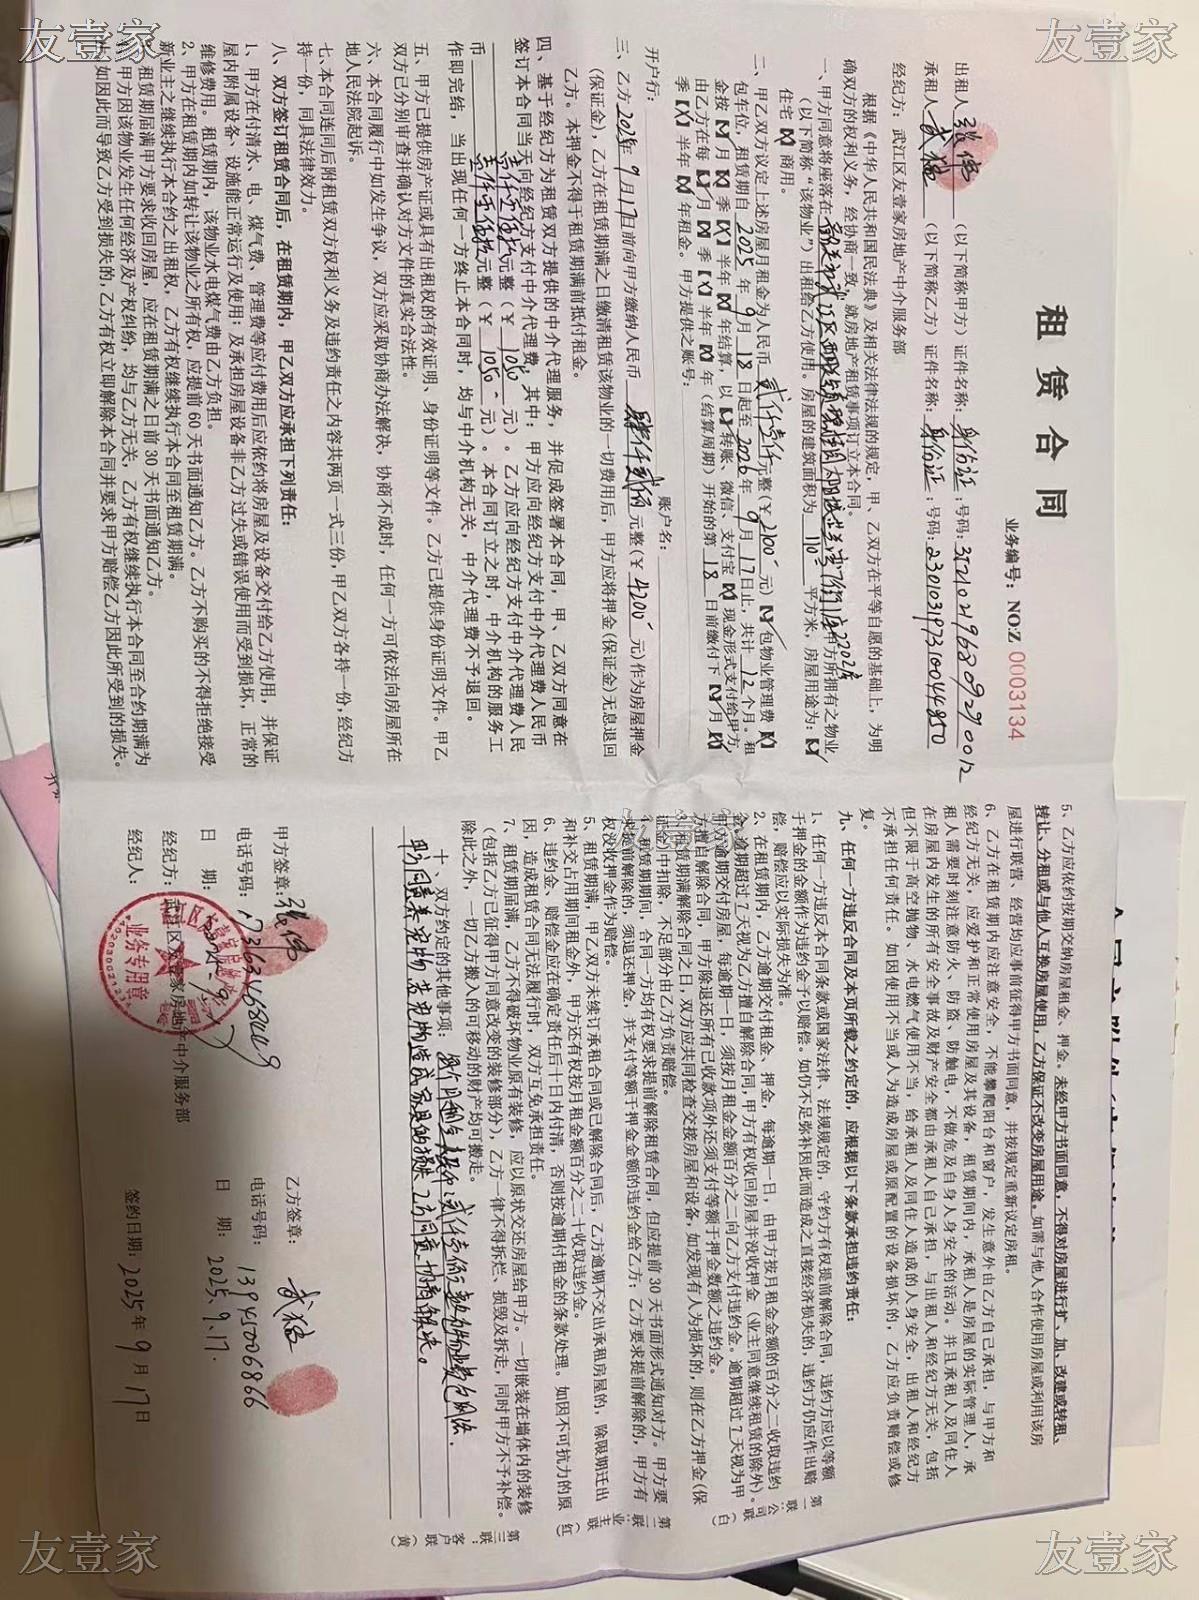 友壹家
友壹家
租赁合同
业务编号：NO:Z 0003134
出租人 张伟 （以下简称甲方）证件名称：身份证：号码：
承租人 武猛 （以下简称乙方）证件名称：身份证：号码：
经纪方：武江区友壹家房地产中介服务部
根据《中华人民共和国民法典》及相关法律法规的规定，甲、乙双方在平等自愿的基础上，为明
确双方的权利义务，经协商一致，就房地产租赁事项订立本合同。
一、甲方同意将座落在 有方所拥有之物业
（以下简称“该物业”）出租给乙方使用。房屋的建筑面积为 110 平方米，房屋用途为：【√】
住宅【×】商用。
二、甲乙双方议定上述房屋月租金为人民币 贰仟壹仟 元整（￥2100 元）【√】包物业管理费【×】
包车位，租赁期自 2025 年 9 月 18 日起至 2026 年 9 月 17 日止，共计 12 个月。租
金按【√】月【×】季【×】半年【×】年结算，以【√】转账、微信、支付宝【×】现金形式支付给甲方，
由乙方在每【√】月【×】季【×】半年【×】年（结算周期）开始的第 18 日前缴付下【√】月【×】
季【×】半年【×】年租金。甲方提供之账号：
开户行： 账户名：
三、乙方 2025年9月17日前向甲方缴纳人民币 肆仟贰佰 元整（￥4200 元）作为房屋押金
（保证金），乙方在租赁期满之日缴清租赁该物业的一切费用后，甲方应将押金（保证金）无息退回
乙方。本押金不得于租赁期满前抵付租金。
四、基于经纪方为租赁双方提供的中介代理服务，并促成签署本合同，甲、乙双方同意在
签订本合同当天向经纪方支付中介代理费，其中：甲方应向经纪方支付中介代理费人民币
壹仟零伍拾元整（￥1050 元）。乙方应向经纪方支付中介代理费人民
币 壹仟零伍拾元整（￥1050 元）。本合同订立之时，中介机构的服务工
作即完结，当出现任何一方终止本合同时，均与中介机构无关，中介代理费不予退回。
五、甲方已提供房产证或具有出租权的有效证明、身份证明等文件。乙方已提供身份证明文件。甲乙
双方已分别审查并确认对方文件的真实合法性。
六、本合同履行中如发生争议，双方应采取协商办法解决，协商不成时，任何一方可依法向房屋所在
地人民法院起诉。
七、本合同连同后附租赁双方权利义务及违约责任之内容共两页一式三份，甲乙双方各持一份，经纪方
持一份，同具法律效力。
八、双方签订租赁合同后，在租赁期内，甲乙双方应承担下列责任：
1、甲方在付清水、电、煤气费、管理费等应付费用后应依约将房屋及设备交付给乙方使用，并保证
屋内附属设备、设施能正常运行及使用；及承担房屋设备非乙方过失或错误使用而受到损坏，正常的
维修费用。租赁期内，该物业水电煤气费由乙方负担。
2、甲方在租赁期内如转让该物业之所有权，应提前 60 天书面通知乙方。乙方不购买的不得拒绝接受
新业主之继续执行本合约之出租权，乙方有权继续执行本合同至租赁期满。
3、租赁期届满甲方要求收回房屋，应在租赁期满之日前 30 天书面通知乙方。
甲方因该物业发生任何经济及产权纠纷，均与乙方无关，乙方有权继续执行本合同至合约期满为
止，如因此而导致乙方受到损失的，乙方有权立即解除本合同并要求甲方赔偿乙方因此所受到的损失。
5、乙方应依约按期交纳房屋租金、押金。未经甲方书面同意，不得对房屋进行扩、加、改建或转租、
转让、分租或与他人互换房屋使用，乙方保证不改变房屋用途。如需与他人合作使用房屋或利用该房
屋进行联营、经营均应事前征得甲方书面同意，并按规定重新议定房租。
6、乙方在租赁期内应注意安全，不能攀爬阳台和窗户，发生意外由乙方自己承担，与甲方和
经纪方无关，应爱护和正常使用房屋及其设备，租赁期间内，承租人是房屋的实际管理人，承
租人需要时刻注意防火、防盗、防触电，不做危及自身人身安全的活动。并且承租人及同住人
在房屋内发生的所有安全事故及财产安全都由承租人自己承担，与出租人和经纪方无关，包括
但不限于高空抛物、水电燃气使用不当，给承租人及同住人造成的人身安全，出租人和经纪方
不承担任何责任。如因使用不当或人为造成房屋或原配置的设备损坏的，乙方应负责赔偿或修
复。
九、任何一方违反合同及本页所载之约定的，应根据以下条款承担违约责任：
1、任何一方违反本合同条款或国家法律、法规规定的，守约方有权提前解除合同，违约方应以等额
于押金的金额作为违约金予以赔偿。如仍不足弥补因此而造成之直接经济损失的，违约方仍应作出赔
偿，赔偿应以实际损失为准。
2、在租赁期内，乙方逾期交付租金、押金，每逾期一日，由甲方按月租金金额的百分之二收取违约
金，逾期超过 7 天视为乙方擅自解除合同，甲方有权收回房屋并没收押金（业主同意继续租赁的除外）。
甲方逾期交付房屋，每逾期一日，须按月租金金额百分之二向乙方支付违约金。逾期超过 7 天视为甲
方擅自解除合同，甲方除退还所有已收款项外还须支付等额于押金数额之违约金。
3、租赁期满解除合同之日，双方应共同检查交接房屋和设备，如发现有人为损坏的，则在乙方押金（保
证金）中扣除，不足部分由乙方负责赔偿。
4、租赁期期间，合同一方均有权要求提前解除租赁合同，但应提前 30 天书面形式通知对方。甲方要
求提前解除的，须退还押金，并支付等额于押金金额的违约金给乙方；乙方要求提前解除的，甲方有
权没收押金作为赔偿。
5、租赁期满，甲乙双方未续订承租合同或已解除合同后，乙方逾期不交出承租房屋的，除限期迁出
和补交占用期间租金外，甲方还有权按月租金额百分之二十收取违约金。
6、违约金、赔偿金应在确定责任后十日内付清，否则按逾期付租金的条款处理。如因不可抗力的原
因，造成租赁合同无法履行时，双方互免承担责任。
7、租赁期届满，乙方不得破坏物业原有装修，应以原状交还房屋给甲方。一切嵌装在墙体内的装修
（包括乙方已征得甲方同意改变的装修部分），乙方一律不得拆烂、损毁及拆走，同时甲方不予补偿。
除此之外，一切乙方搬入的可移动的财产均可搬走。
十、双方约定的其他事项：
甲方同意养宠物，若宠物造成家具的损失乙方同意协商解决。
第一联：公司联（白）
第二联：业主联（红）
第三联：客户联（黄）
甲方签章：张伟
电话号码：
日 期：
经纪方：武江区友壹家房地产中介服务部
经纪人：
业务专用章
乙方签章：武猛
电话号码：13945006866
日 期：2025.9.17.
签约日期：2025 年 9 月 17 日
友壹家
友壹家
友壹家